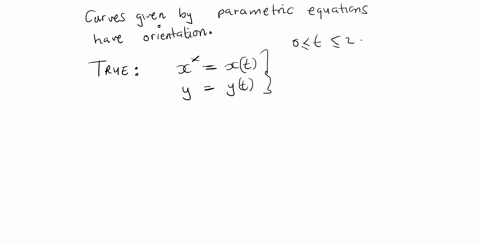 Curves given by parametric equations
have orientation.
0 ≤ t ≤ 2.
TRUE: x = x(t)
y = y(t)